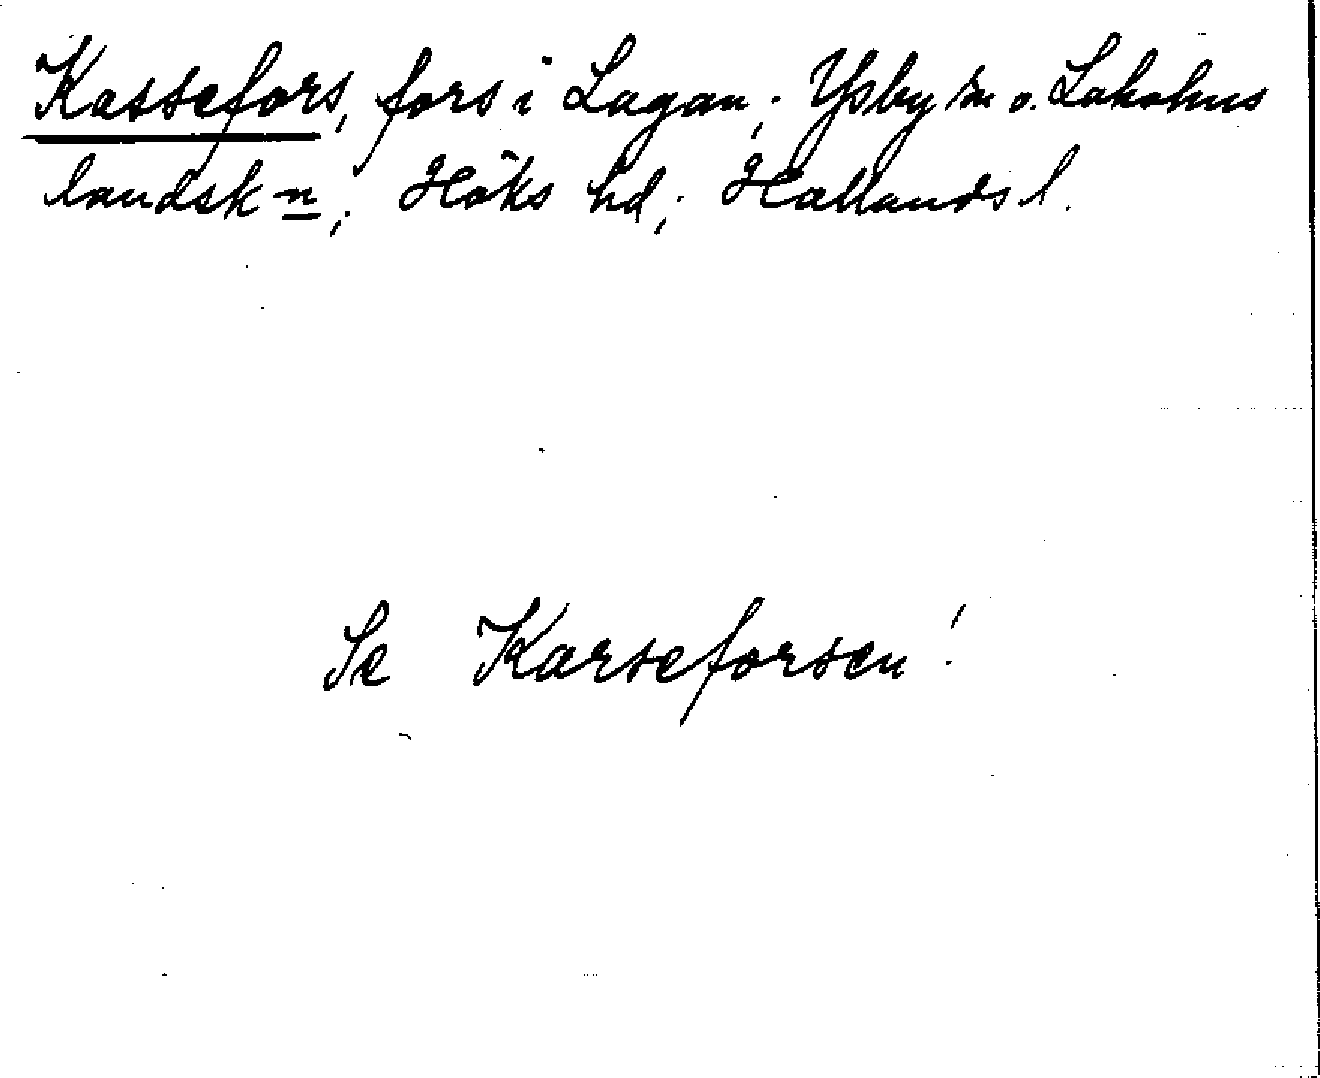 Kassefors, fors i Lagan; Ysby sn o. Laholms
landskn; Höks hd; Hallands l.
Se Karseforsen!